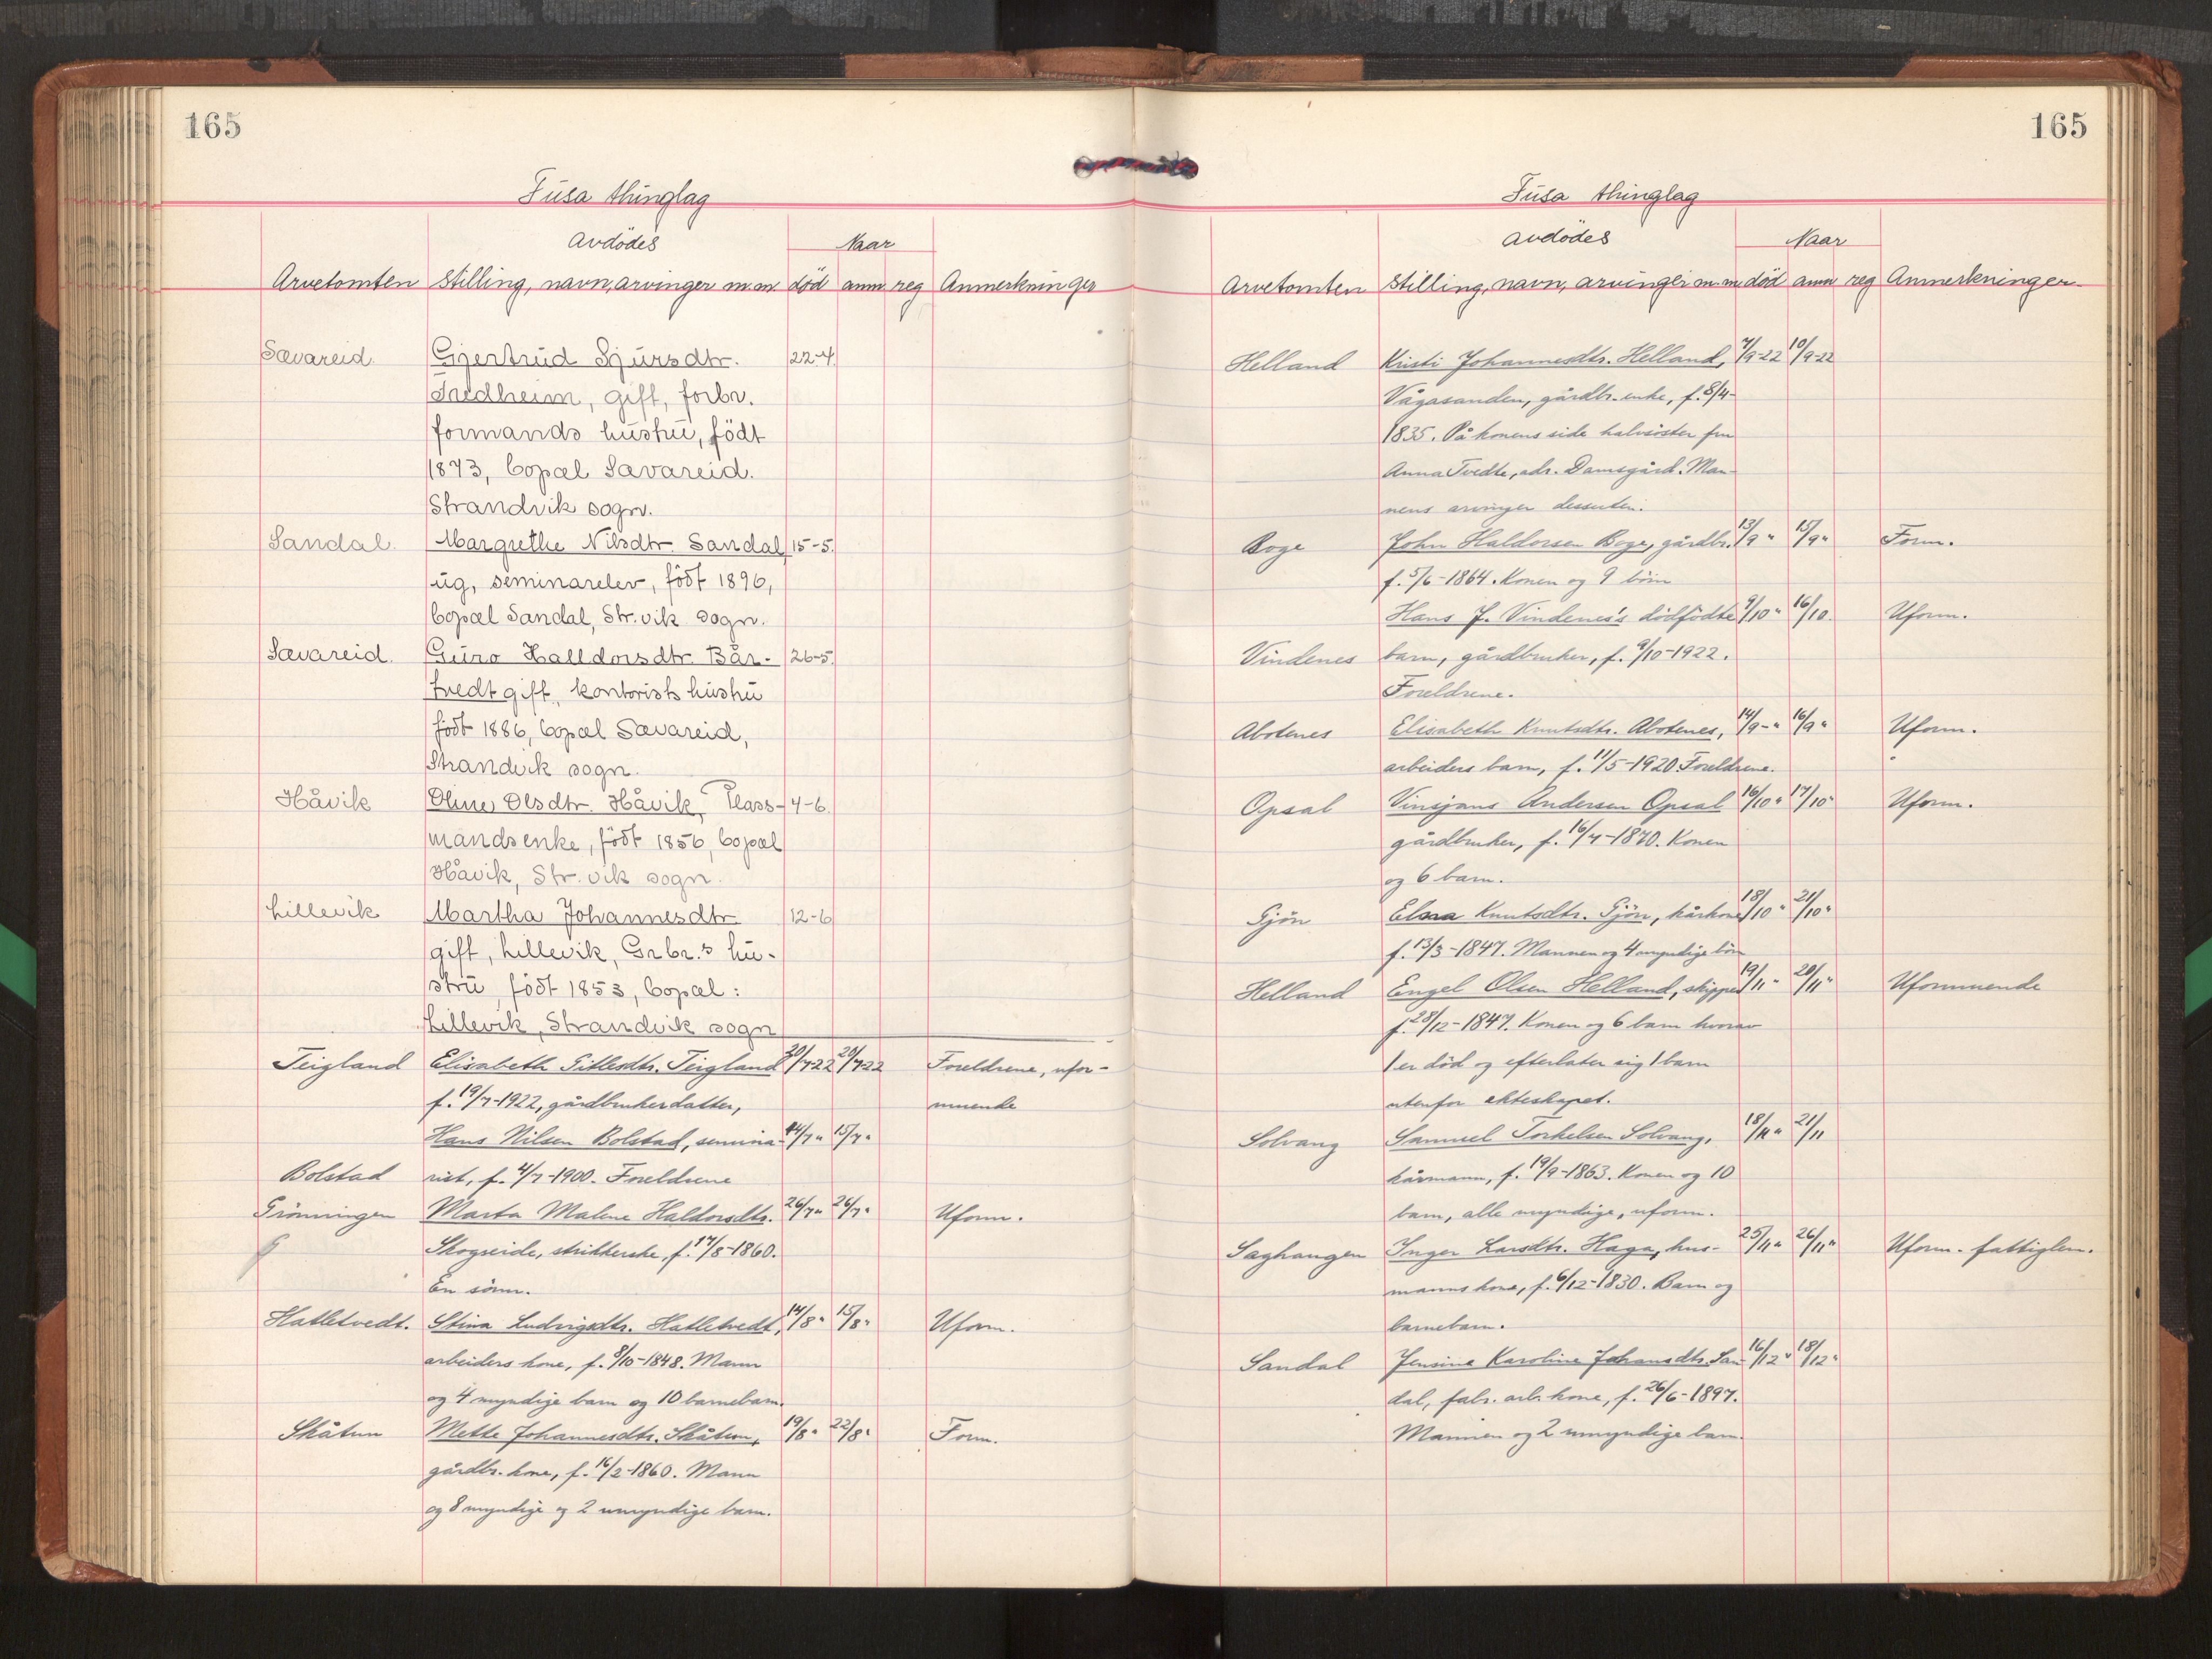 165
Fusa thinglag
Avdödes
Naar
Arvetomten stilling, navn, arvinger m.m. död anm reg Anmerkninger
Sævareid. Gjertrud Sjursdtr. 22-4
Fredheim, gift, forbr.
formands hustru, födt
1873, bopæl Sævareid.
Strandvik sogn.
Sandal. Margrethe Nilsdtr. Sandal 15-5.
ug, seminarelev, födt 1896,
bopæl Sandal, Str.vik sogn.
Sævareid. Guro Halldorsdtr. Bår- 26-5.
tvedt gift, kontorists hustru
födt 1886, bopæl Sævareid,
Strandvik sogn.
Håvik Oline Olsdtr. Håvik, Plass- 4-6.
mandsenke, födt 1856, bopæl
Håvik, Str.vik sogn.
Lillevik Martha Johannesdtr. 12-6
gift, Lillevik, Grbr.s hu-
stru, födt 1853, bopæl:
Lillevik, Strandvik sogn
Teigland Elisabeth Titlesdtr. Teigland 20/7 22 20/7 22 Foreldrene, ufor-
f. 19/7-1922, gårdbrukerdatter, muende
Hans Nilsen Bolstad, semina- 14/7 " 15/7 "
Bolstad rist, f. 4/7-1900. Foreldrene
Grönningen Marta Malene Haldorsdtr. 26/7 " 26/7 " Uform.
Skogseide, strikkerske, f. 17/8-1860.
En sönn.
Hatletvedt. Stina Ludvigsdtr. Hatletvedt, 14/8 " 15/8 " Uform.
arbeiders kone, f. 8/10-1848. Mann
og 4 myndige barn og 10 barnebarn.
Skåtun Mette Johannesdtr. Skåtun, 19/8 " 22/8 " Form.
gårdbr. kone, f. 16/2-1860. Mann
og 8 myndige og 2 umyndige barn.
165
Fusa thinglag
Avdödes
Naar
Arvetomten stilling, navn, arvinger m.m. död anm reg Anmerkninger.
Helland Kristi Johannesdtr. Helland, 7/9-22 10/9-22
Vågasanden, gårdbr. enke, f. 8/4-
1835. På konens side halvsöster fru
Anna Tvedte, adr. Damsgård. Man-
nens arvinger dessuten.
Boge John Haldorsen Boge, gårdbr. 13/9 " 15/9 " Form.
f. 5/6-1864. Konen og 9 börn
Hans J. Vindenes's dödfödte 9/10 " 16/10. Uform.
Vindenes barn, gårdbruker, f. 9/10-1922.
Foreldrene.
Abotenes Elisabeth Knutsdtr. Abotenes, 14/9- " 16/9 " Uform.
arbeiders barn, f. 11/5-1920. Foreldrene.
Opsal Vinsjans Andersen Opsal 16/10 " 17/10 " Uform.
gårdbruker, f. 16/4-1870. Konen
og 6 barn.
Gjön Elsra Knutsdtr. Gjön, kårkone 18/10 " 21/10 "
f. 13/3-1847. Mannen og 4 myndige börn
Helland Engel Olsen Helland, skipper 19/11 " 20/11 " Uformuende
f. 28/12-1847. Konen og 6 barn hvorav
1 er död og efterlater sig 1 barn
utenfor ekteskapet.
Solvang Samuel Torkelsen Solvang, 18/11 " 21/11
kårmann, f. 19/9-1863. Konen og 10
barn, alle myndige, uform.
Saghaugen Inger Larsdtr. Haga, hus- 25/11 " 26/11 " Uform. fattiglem.
manns kone, f. 6/12-1830. Barn og
barnebarn.
Sandal Jensine Karoline Johansdtr. San- 16/12 " 18/12 "
dal, fabr. arb. kone, f. 26/6-1897.
Mannen og 2 umyndige barn.